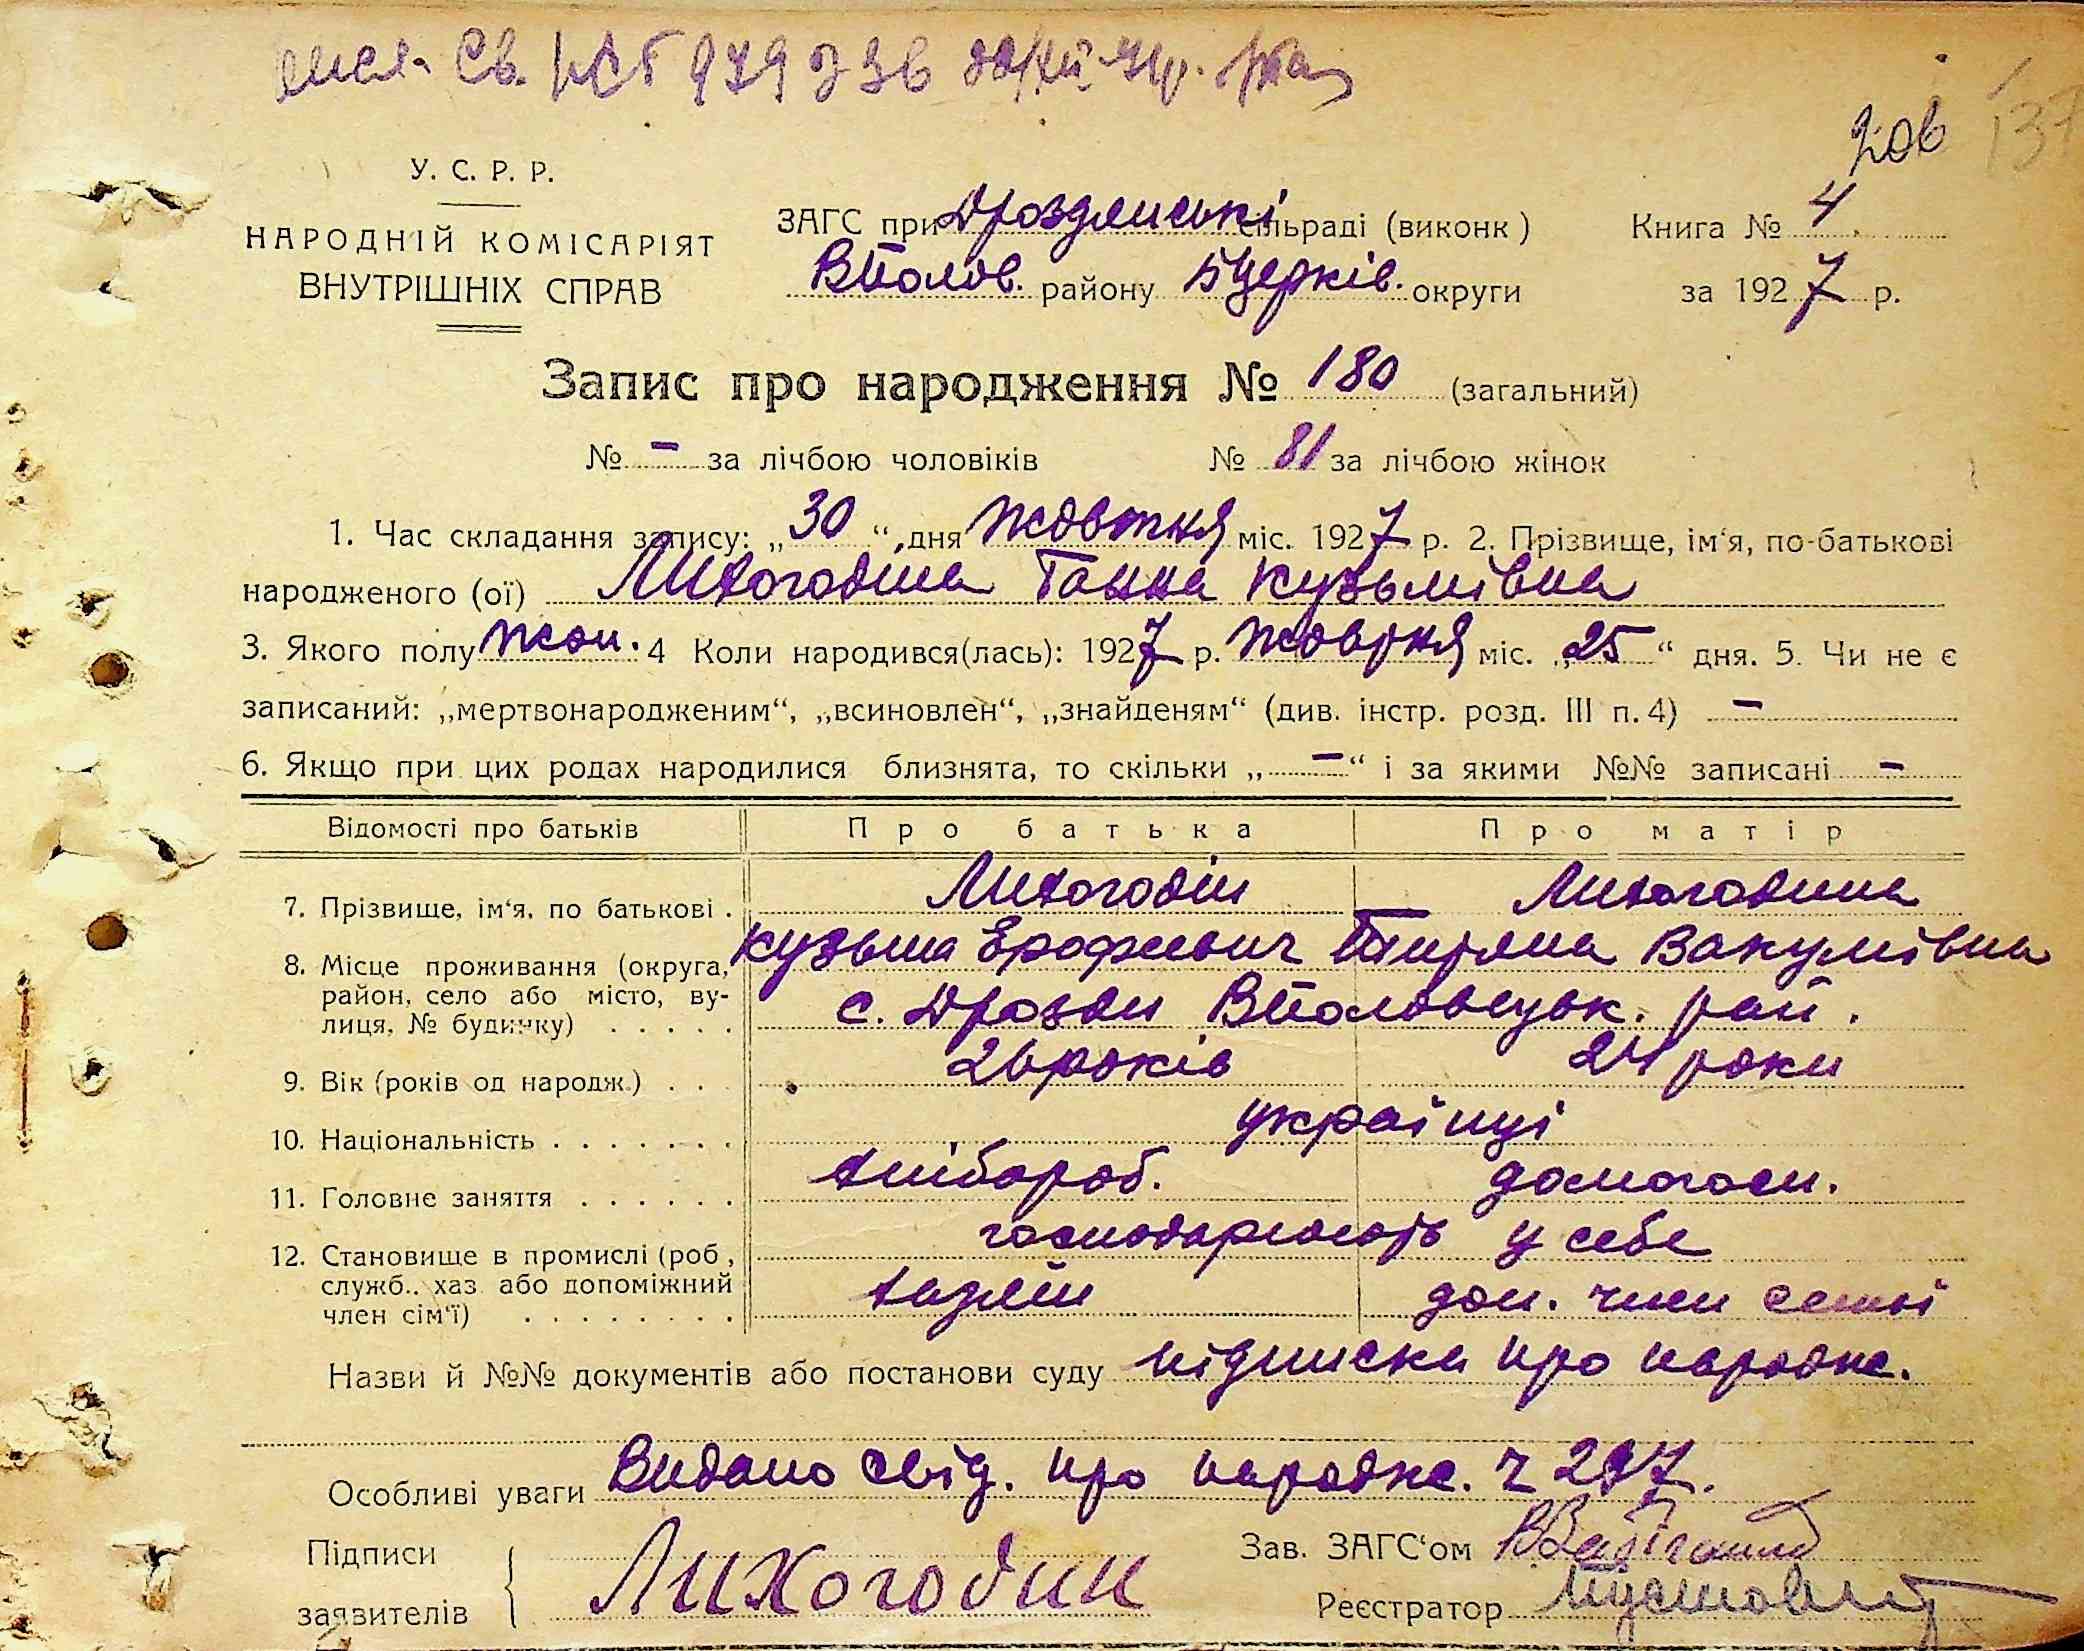 Св. 979336
дов 137
У. С. Р. Р.
НАРОДНІЙ КОМІСАРІЯТ
ВНУТРІШНІХ СПРАВ
ЗАГС при Дроздянські сільраді (виконк)
Книга № 4
ВПолов. району БЦерків. округи
за 1927 р.
Запис про народження № 180 (загальний)
№ - за лічбою чоловіків № 81 за лічбою жінок
1. Час складання запису: „30“ дня жовтня міс. 1927 р. 2. Прізвище, ім'я, по-батькові
народженого (ої) Лихогодина Ганна Кузьмівна
3. Якого полу жон. 4 Коли народився(лась): 1927 р. жовтня міс. „25“ дня. 5. Чи не є
записаний: „мертвонародженим“, „всиновлен“, „знайденям“ (див. інстр. розд. III п. 4) -
6. Якщо при цих родах народилися близнята, то скільки „-“ і за якими №№ записані -
Відомості про батьків Про батька Про матір
7. Прізвище, ім'я, по батькові . Лихогодін Лихогодина
Кузьма Ерофеевич Тетяна Вакумівна
8. Місце проживання (округа,
район, село або місто, ву-
лиця, № будинку) . . . . . с. Дрозди ВПоловецьк. рай.
9. Вік (років од народж.) . . 26 років 24 роки
10. Національність . . . . . . . українці
11. Головне заняття . . . . . . хлібороб. домогосп.
господарюють у себе
12. Становище в промислі (роб,
служб.. хаз або допоміжний
член сім'ї) . . . . . . . . хазяїн доп. член семьї
Назви й №№ документів або постанови суду підписка про народж.
Особливі уваги Видано свід. про народж. Ч 297.
Підписи
заявителів
Лихогодин
Зав. ЗАГС'ом
Реєстратор